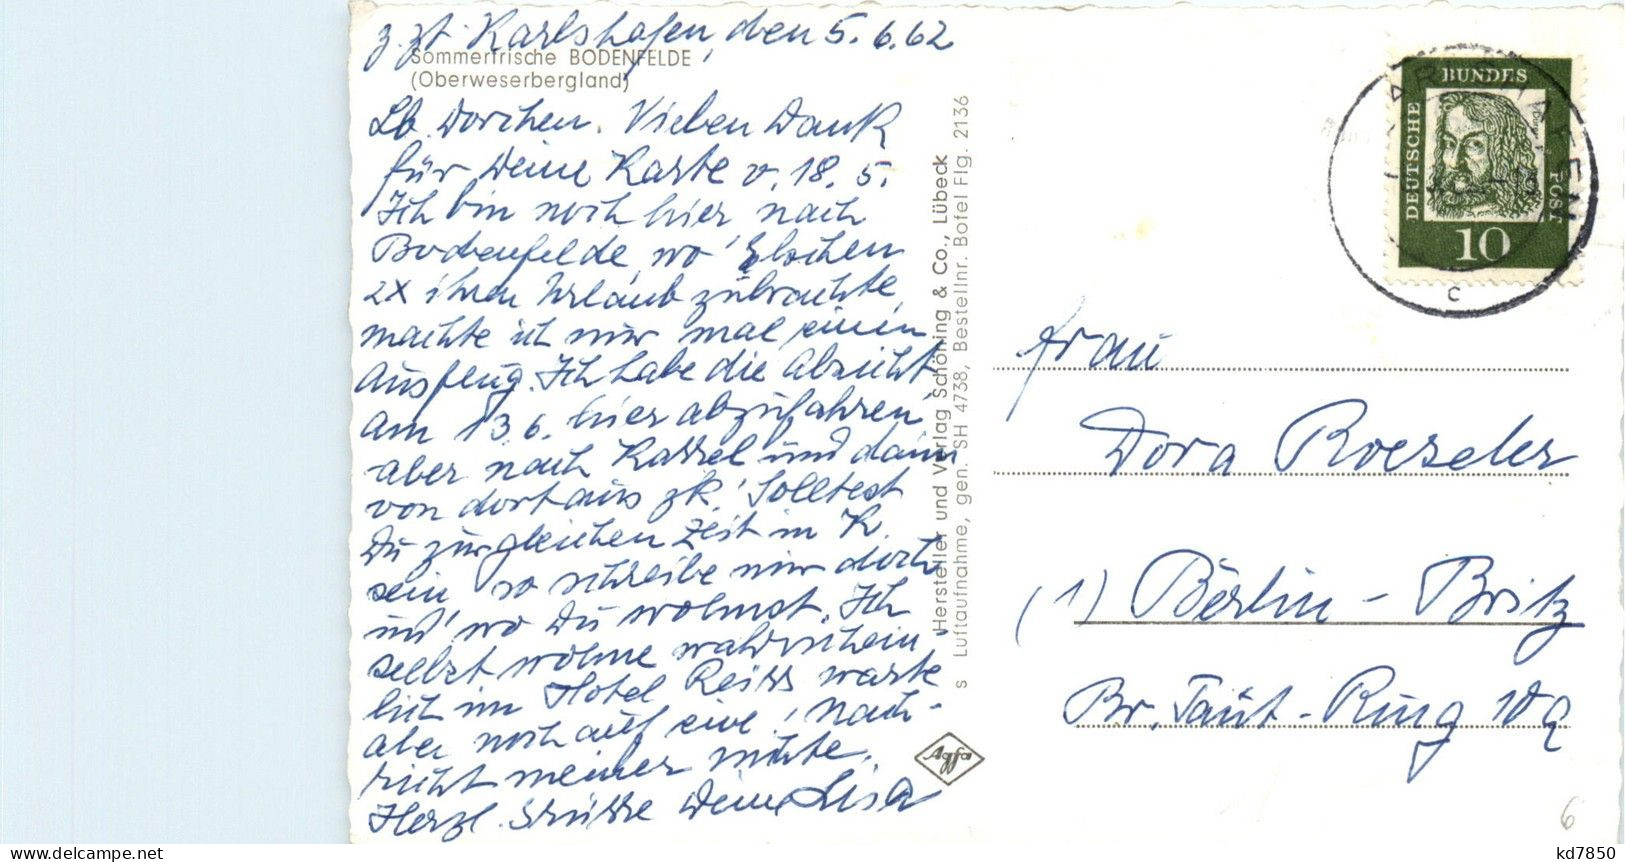 z. zt. Karlshafen, den 5.6.62
Sommerfrische BODENFELDE
(Oberweserbergland)
Lb. Dorchen. Vielen Dank
für Deine Karte v. 18. 5.
Ich bin noch hier, nach
Bodenfelde, wo Elschen
2x ihren Urlaub zubrachte,
machte ich nur mal einen
Ausflug. Ich habe die Absicht
am 13.6. hier abzufahren,
aber nach Kassel und dann
von dort aus zk. Solltest
Du zur gleichen Zeit in K.
sein so schreibe mir doch
mit wo Du wohnst. Ich
selbst wohne wahrschein-
lich im Hotel Reiss warte
aber noch auf eine Nach-
richt meiner Nichte.
Herzl. Grüsse Deine Lisa
Hersteller und Verlag Schöning & Co., Lübeck
s Luftaufnahme, gen. SH 4738, Bestellnr. Bofel Flg. 2136
Agfa
DEUTSCHE
BUNDES
POST
10
KARLSHAFEN
c
Frau
Dora Roeseler
(1) Berlin - Britz
Br. Taut-Ring 10a
6
kd7850